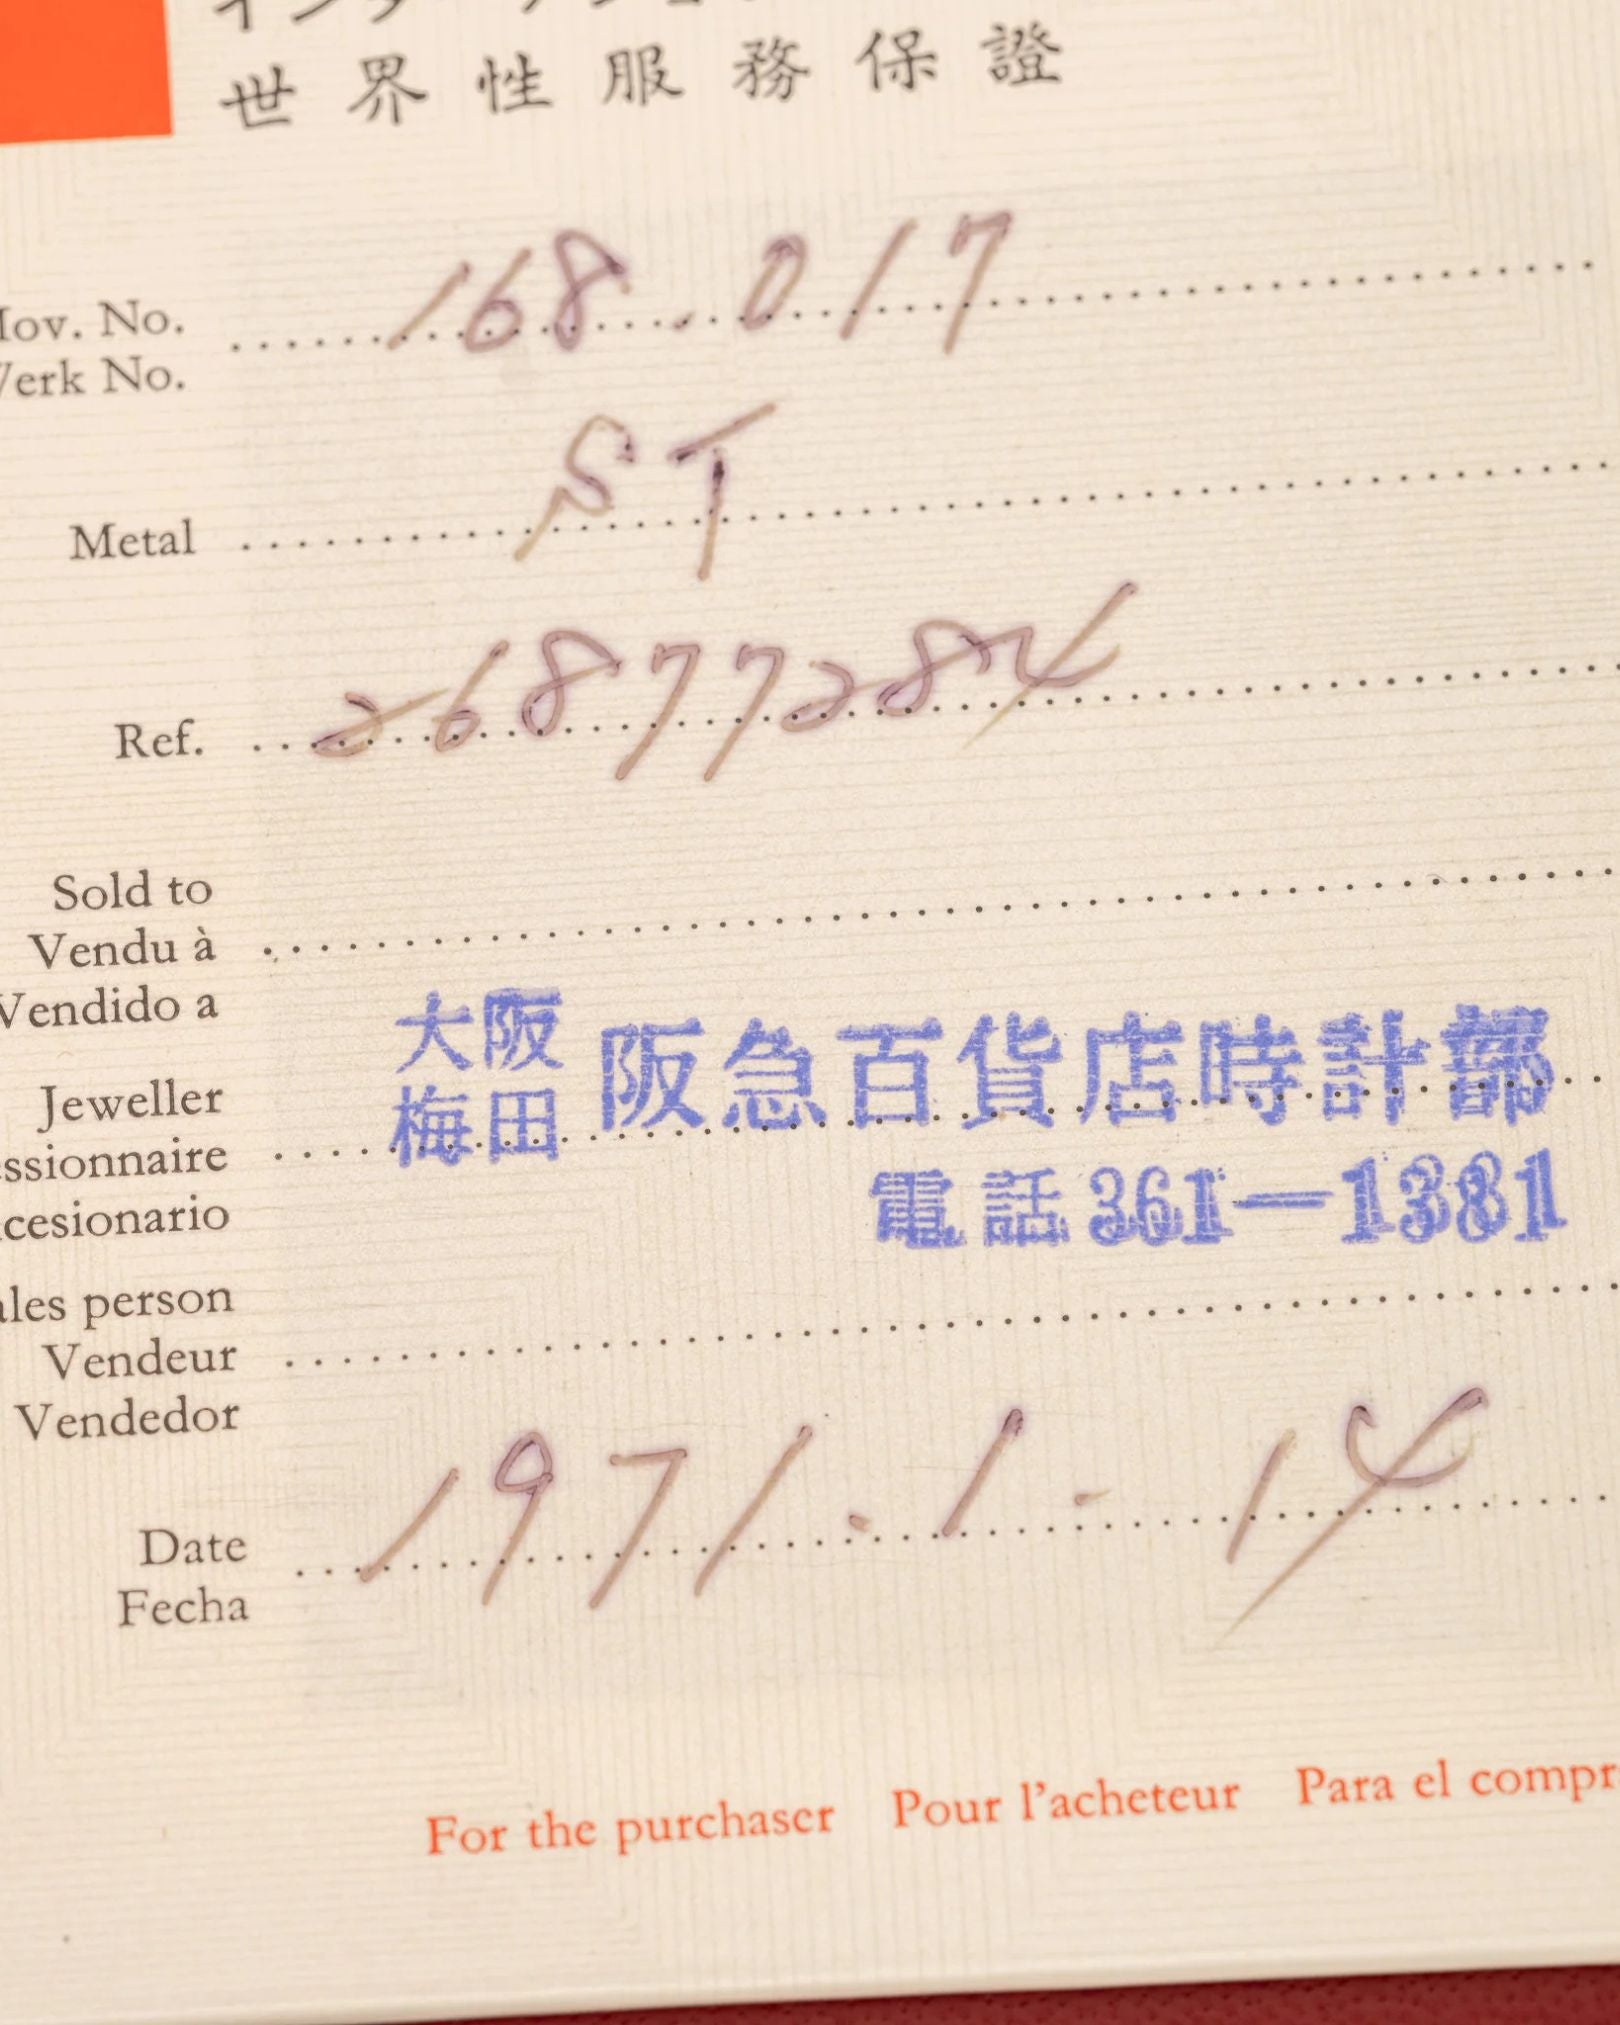 世界性服務保證
Mov. No. 168.017
Werk No.
Metal ST
Ref. 26877284
Sold to
Vendu à
Vendido a
大阪
梅田 阪急百貨店時計部
Jeweller
電話361—1381
Sales person
Vendeur
Vendedor
Date 1971.1-14
Fecha
For the purchaser Pour l'acheteur Para el